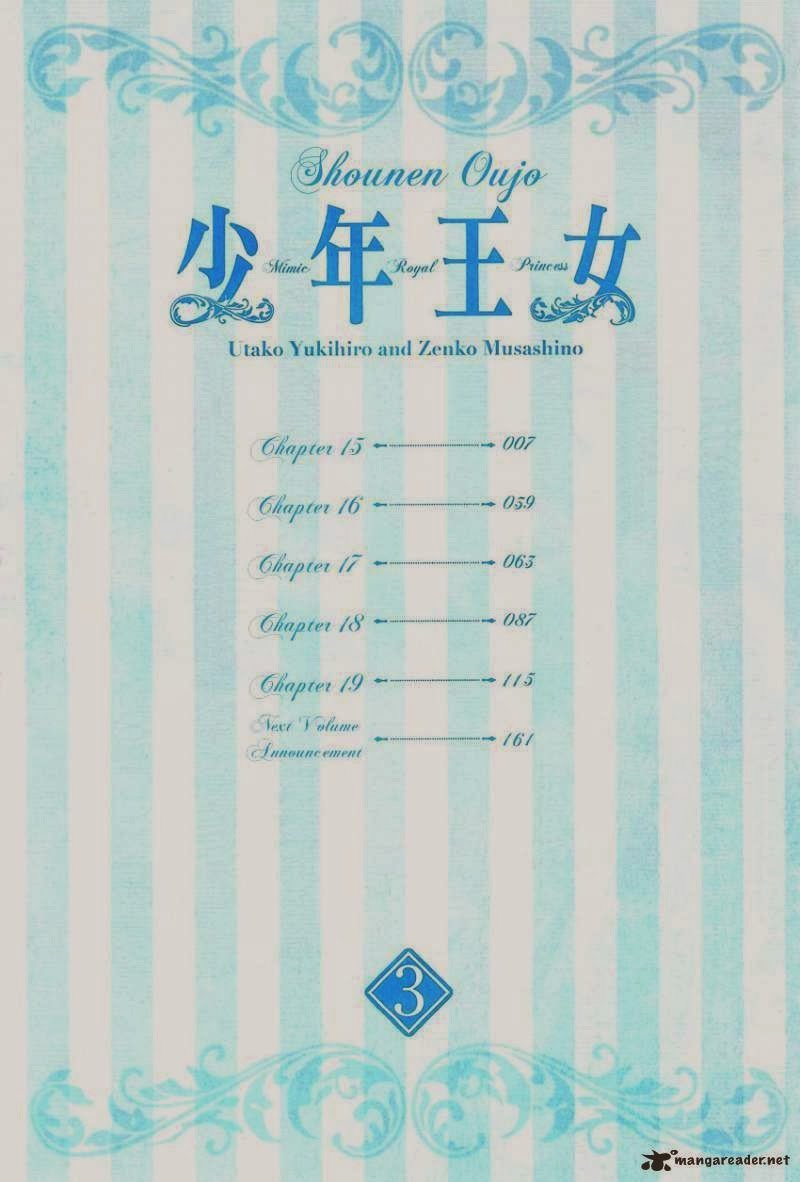 Shounen Oujo
少年王女
Mimic Royal Princess
Utako Yukihiro and Zenko Musashino
Chapter 15 007
Chapter 16 039
Chapter 17 063
Chapter 18 087
Chapter 19 115
Next Volume
Announcement 161
3
mangareader.net